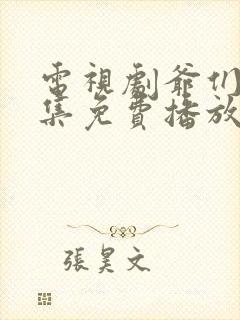 電視劇爺们
集免費播放
張昊文